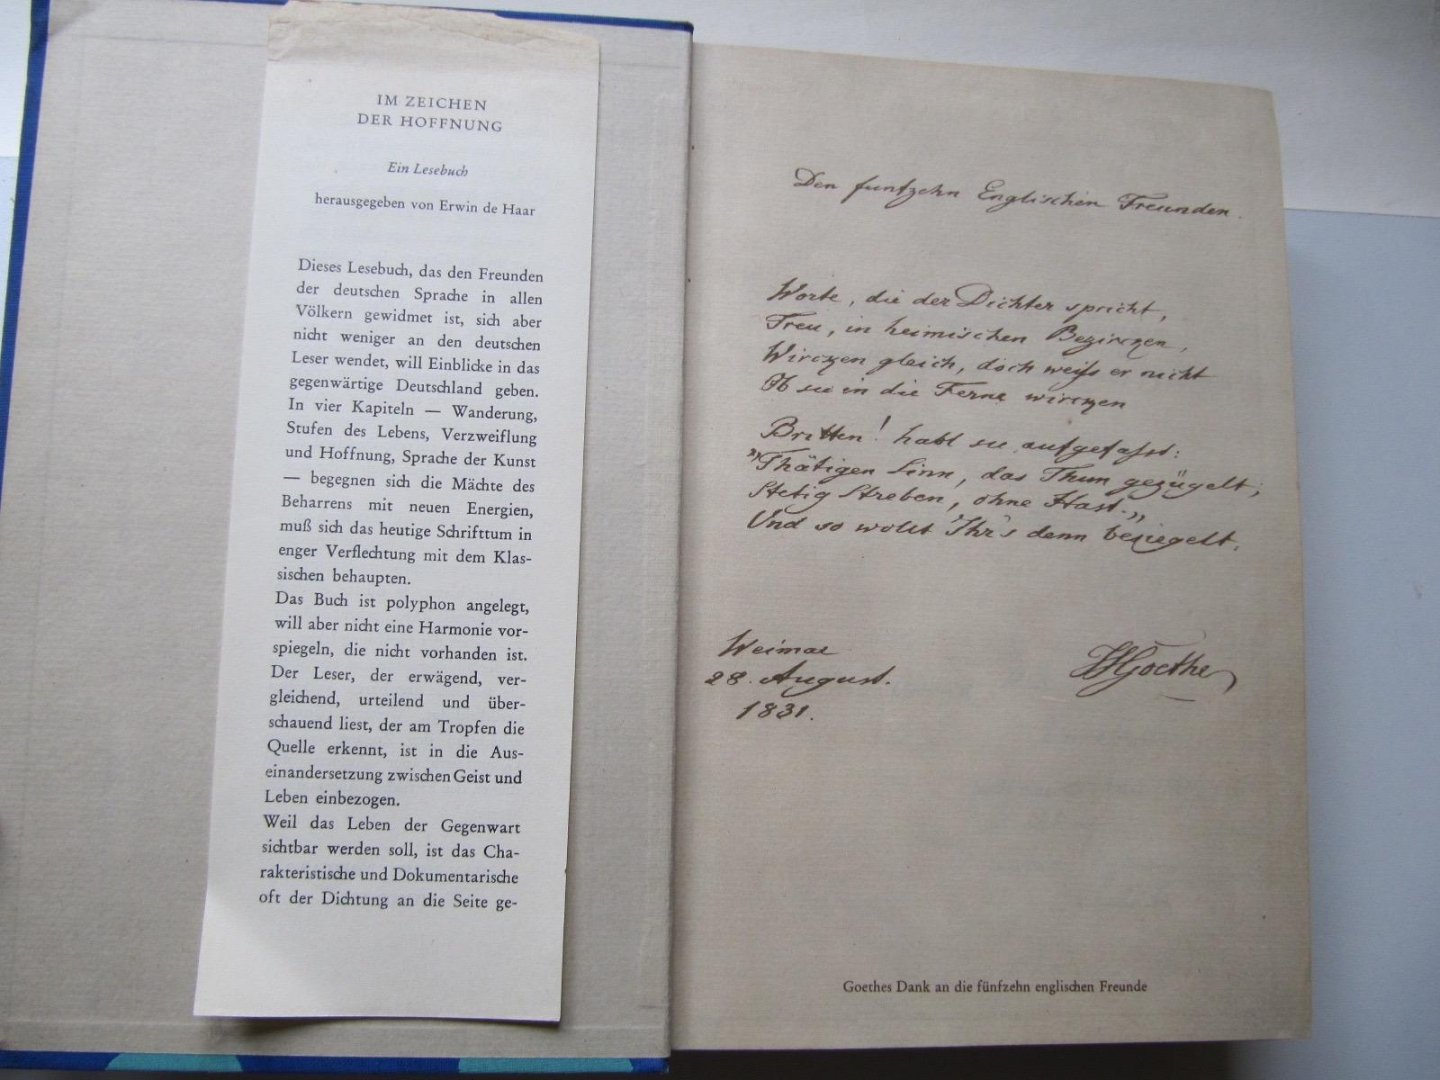 IM ZEICHEN
DER HOFFNUNG
Ein Lesebuch
herausgegeben von Erwin de Haar
Dieses Lesebuch, das den Freunden
der deutschen Sprache in allen
Völkern gewidmet ist, sich aber
nicht weniger an den deutschen
Leser wendet, will Einblicke in das
gegenwärtige Deutschland geben.
In vier Kapiteln — Wanderung,
Stufen des Lebens, Verzweiflung
und Hoffnung, Sprache der Kunst
— begegnen sich die Mächte des
Beharrens mit neuen Energien,
muß sich das heutige Schrifttum in
enger Verflechtung mit dem Klas-
sischen behaupten.
Das Buch ist polyphon angelegt,
will aber nicht eine Harmonie vor-
spiegeln, die nicht vorhanden ist.
Der Leser, der erwägend, ver-
gleichend, urteilend und über-
schauend liest, der am Tropfen die
Quelle erkennt, ist in die Aus-
einandersetzung zwischen Geist und
Leben einbezogen.
Weil das Leben der Gegenwart
sichtbar werden soll, ist das Cha-
rakteristische und Dokumentarische
oft der Dichtung an die Seite ge-
Den funfzehn Englischen Freunden.
Worte, die der Dichter spricht,
Treu, in heimischen Bezircken,
Wircken gleich, doch weiß er nicht
Ob sie in die Ferne wircken
Britten! habt sie aufgefasst:
"Thätigen Sinn, das Thun gezügelt;
Stetig Streben, ohne Hast."
Und so wollt Ihr's denn besiegelt.
Weimar
28. August.
1831.
JWGoethe
Goethes Dank an die fünfzehn englischen Freunde